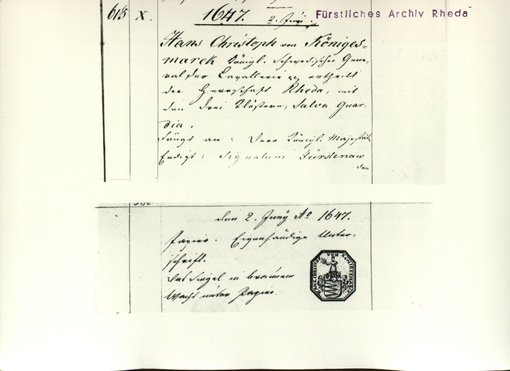 615 X. 1647. 2. Juni. Fürstliches Archiv Rheda
Hans Christoph von Königes-
marck Königl. Schwedischer Gene-
ral der Cavallerie ertheilt
der Herrschaft Rheda, mit
den drei Klöstern, Salva Guar-
dia.
Fängt an: Der Königl. Majestät
Endigt: Signatum Fürstenau
den
den 2. Juny Aº 1647.
Papier. Eigenhändige Unter-
schrift.
Das Siegel in braunem
Wachs unter Papier.